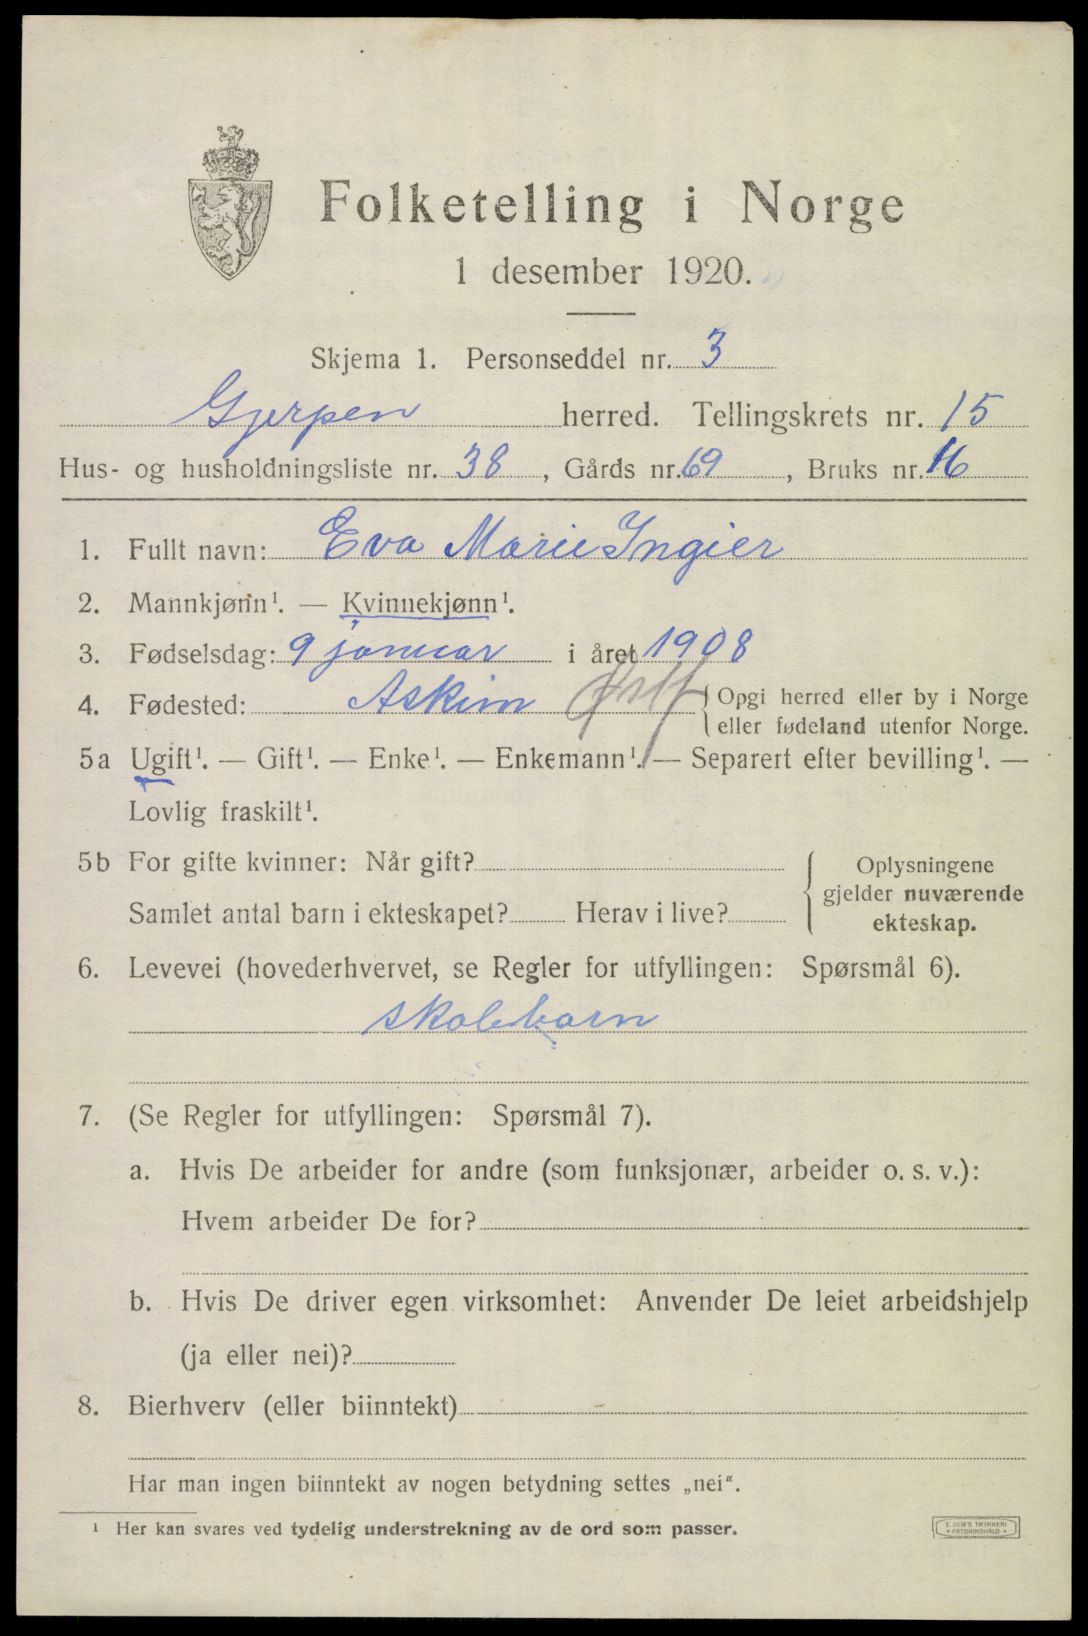 Folketelling i Norge
1 desember 1920.
Skjema 1. Personseddel nr. 3
Gjerpen herred. Tellingskrets nr. 15
Hus- og husholdningsliste nr. 38, Gårds nr. 69, Bruks nr. 16
1. Fullt navn: Eva Marie Ingier
2. Mannkjønn¹. — Kvinnekjønn¹.
3. Fødselsdag: 9 januar i året 1908
4. Fødested: Askim Østf { Opgi herred eller by i Norge
eller fødeland utenfor Norge.
5a Ugift¹. — Gift¹. — Enke¹. — Enkemann¹. — Separert efter bevilling¹. —
Lovlig fraskilt¹.
5b For gifte kvinner: Når gift?
Samlet antal barn i ekteskapet? Herav i live?
Oplysningene
gjelder nuværende
ekteskap.
6. Levevei (hovederhvervet, se Regler for utfyllingen: Spørsmål 6).
skolebarn
7. (Se Regler for utfyllingen: Spørsmål 7).
a. Hvis De arbeider for andre (som funksjonær, arbeider o. s. v.):
Hvem arbeider De for?
b. Hvis De driver egen virksomhet: Anvender De leiet arbeidshjelp
(ja eller nei)?
8. Bierhverv (eller biinntekt)
Har man ingen biinntekt av nogen betydning settes „nei“.
¹ Her kan svares ved tydelig understrekning av de ord som passer.
E. SEM'S TRYKKERI
• FREDRIKSHALD •